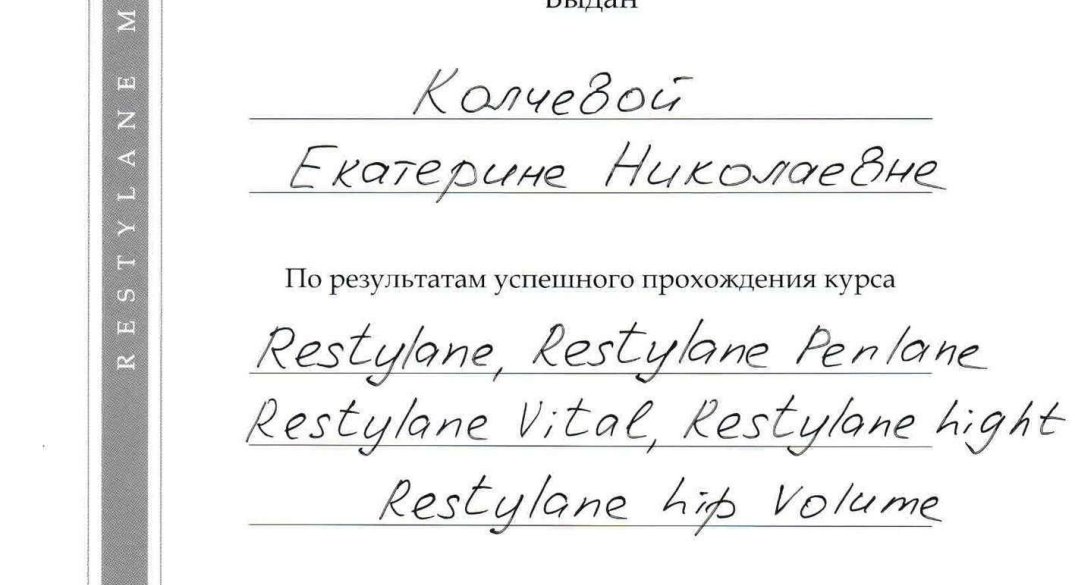 RESTYLANE M
Выдан
Колчевой
Екатерине Николаевне
По результатам успешного прохождения курса
Restylane, Restylane Perlane
Restylane Vital, Restylane Light
Restylane Lip Volume